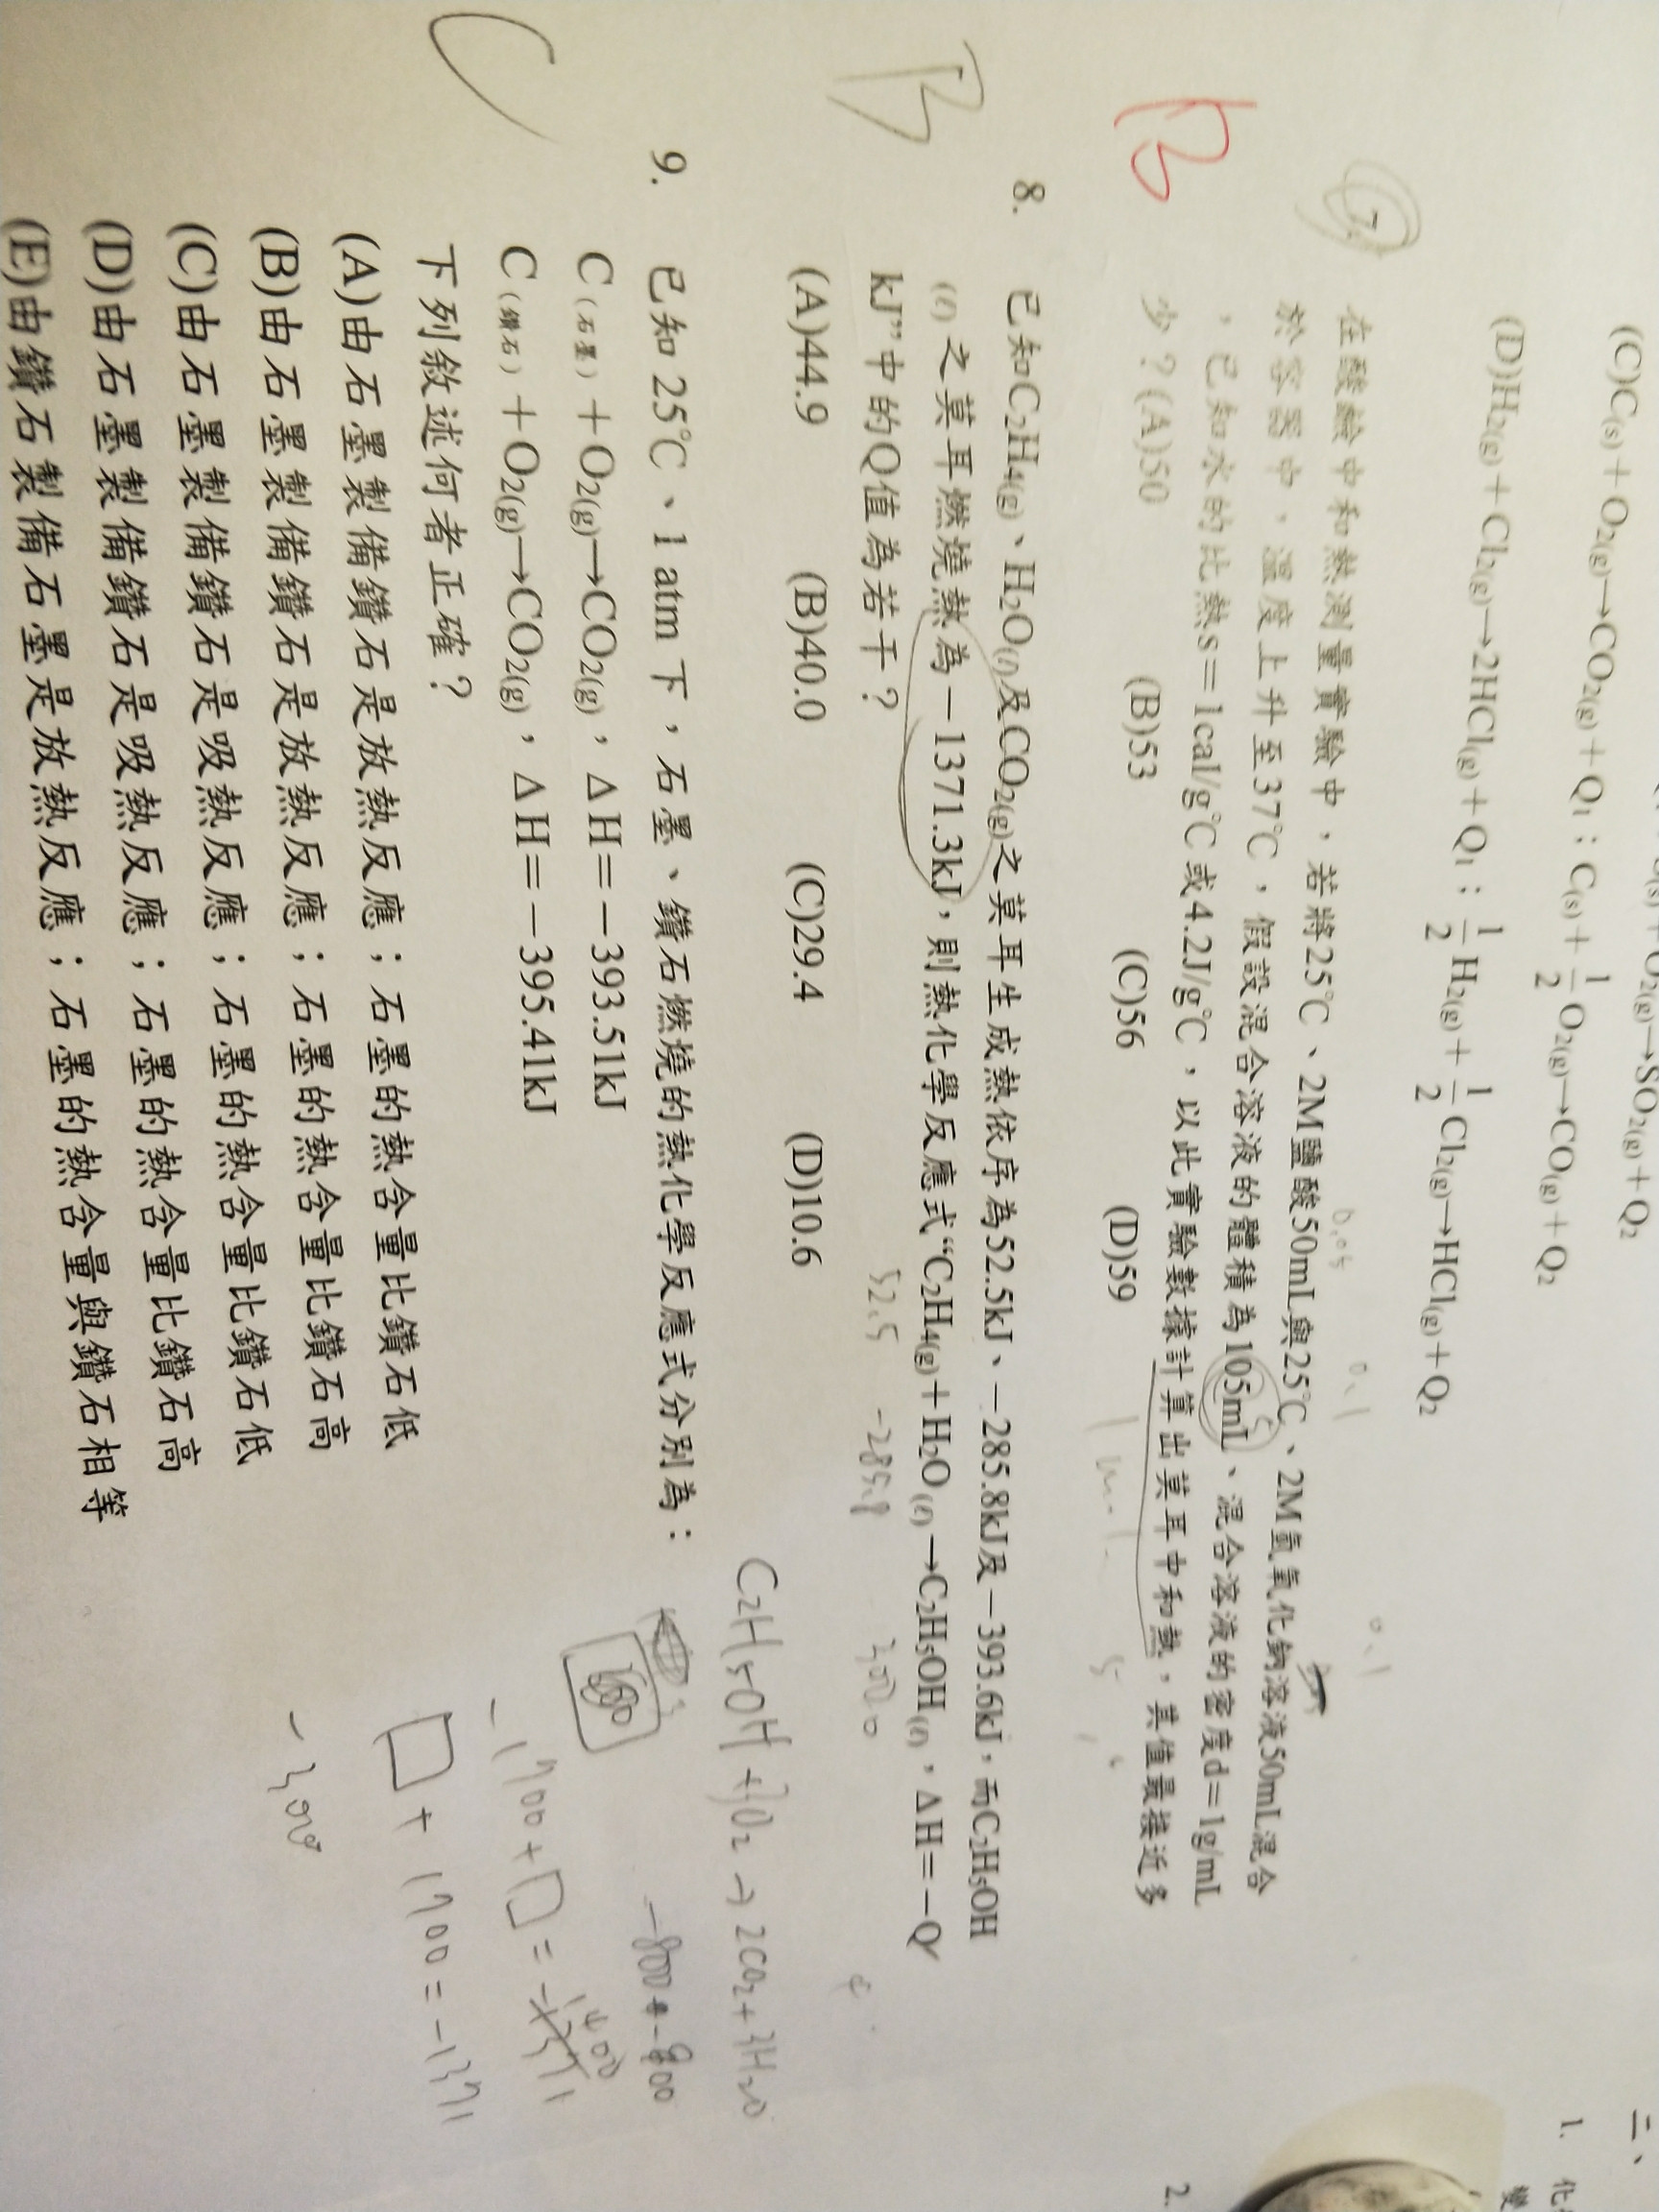 (C)C(s)+O2(g)→CO2(g)+Q1；C(s)+1/2O2(g)→CO(g)+Q2
(D)H2(g)+Cl2(g)→2HCl(g)+Q1；1/2H2(g)+1/2Cl2(g)→HCl(g)+Q2
B
7.
在酸鹼中和熱測量實驗中，若將25℃、2M鹽酸50mL與25℃、2M氫氧化鈉溶液50mL混合
於容器中，溫度上升至37℃，假設混合溶液的體積為105mL、混合溶液的密度d=1g/mL
，已知水的比熱s=1cal/g℃或4.2J/g℃，以此實驗數據計算出莫耳中和熱，其值最接近多
少？(A)50 (B)53 (C)56 (D)59
B
8. 已知C2H4(g)、H2O(ℓ)及CO2(g)之莫耳生成熱依序為52.5kJ、−285.8kJ及−393.6kJ，而C2H5OH
(ℓ)之莫耳燃燒熱為−1371.3kJ，則熱化學反應式“C2H4(g)+H2O(ℓ)→C2H5OH(ℓ)，ΔH=−Q
kJ”中的Q值為若干？
(A)44.9 (B)40.0 (C)29.4 (D)10.6
52.5
C2H5OH+3O2→2CO2+3H2O
C
9. 已知 25℃、1 atm 下，石墨、鑽石燃燒的熱化學反應式分別為：
C(石墨)+O2(g)→CO2(g)，ΔH=−393.51kJ
C(鑽石)+O2(g)→CO2(g)，ΔH=−395.41kJ
下列敘述何者正確？
(A)由石墨製備鑽石是放熱反應；石墨的熱含量比鑽石低
(B)由石墨製備鑽石是放熱反應；石墨的熱含量比鑽石高
(C)由石墨製備鑽石是吸熱反應；石墨的熱含量比鑽石低
(D)由石墨製備鑽石是吸熱反應；石墨的熱含量比鑽石高
(E)由鑽石製備石墨是放熱反應；石墨的熱含量與鑽石相等
-800+-800
-1700+□=-1371
1400
□+1700=-1371
二、
1.
2.